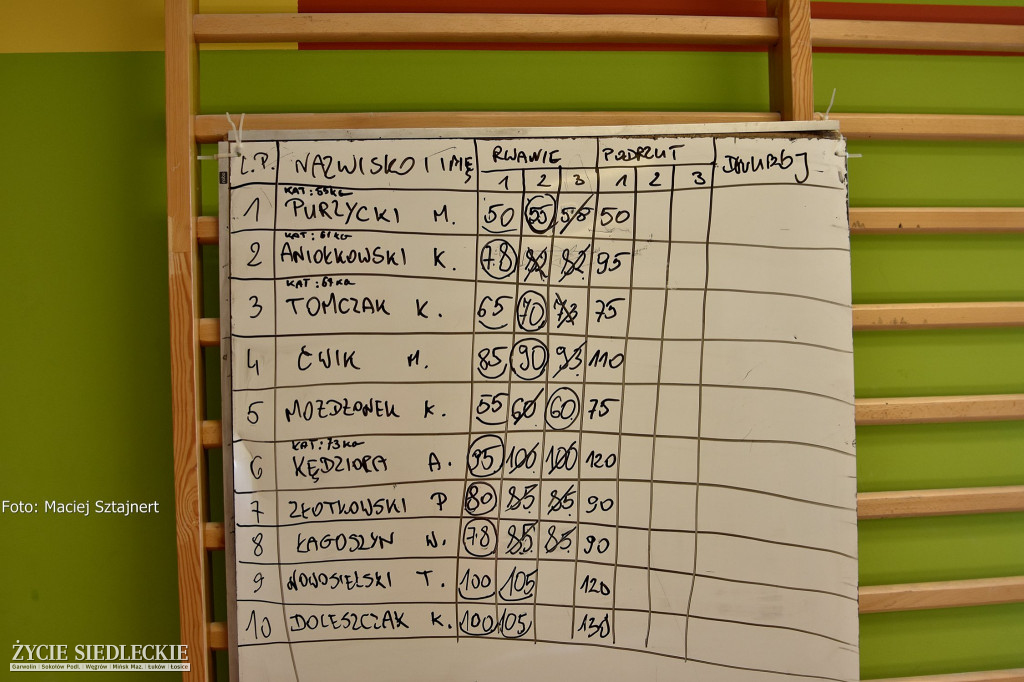 L.P. NAZWISKO I IMIĘ RWANIE PODRZUT DWUBÓJ
1 2 3 1 2 3
KAT: 55KG
1 PURZYCKI M. 50 55 58 50
KAT: 61KG
2 ANIOŁKOWSKI K. 78 82 82 95
KAT: 67KG
3 TOMCZAK K. 65 70 73 75
4 ĆWIK M. 85 90 93 110
5 MOZDŻONEK K. 55 60 60 75
KAT: 73KG
6 KĘDZIORA A. 95 100 100 120
7 ZŁOTKOWSKI P 80 85 85 90
8 ŁAGOSZYN W. 78 85 85 90
9 NOWOSIELSKI T. 100 105 120
10 DOLESZCZAK K. 100 105 130
Foto: Maciej Sztajnert
ŻYCIE SIEDLECKIE
Garwolin | Sokołów Podl. | Węgrów | Mińsk Maz. | Łuków | Łosice